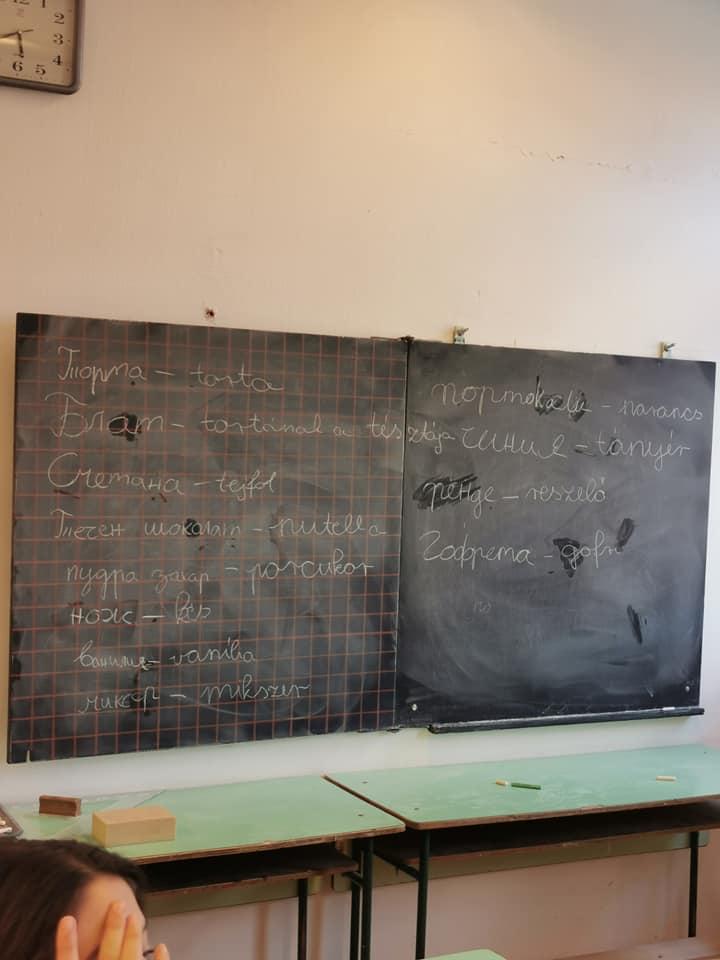 12 1
2
3
4
5
6
Торта - torta
Блат - tortának a tésztája
Сметана - tejföl
Течен шоколат - nutella
пудра захар - porcukor
нож - kés
ванилия - vanília
миксер - mikszer
портокали - narancs
чиния - tányér
рěнде - reszelő
Гофрета - gofri